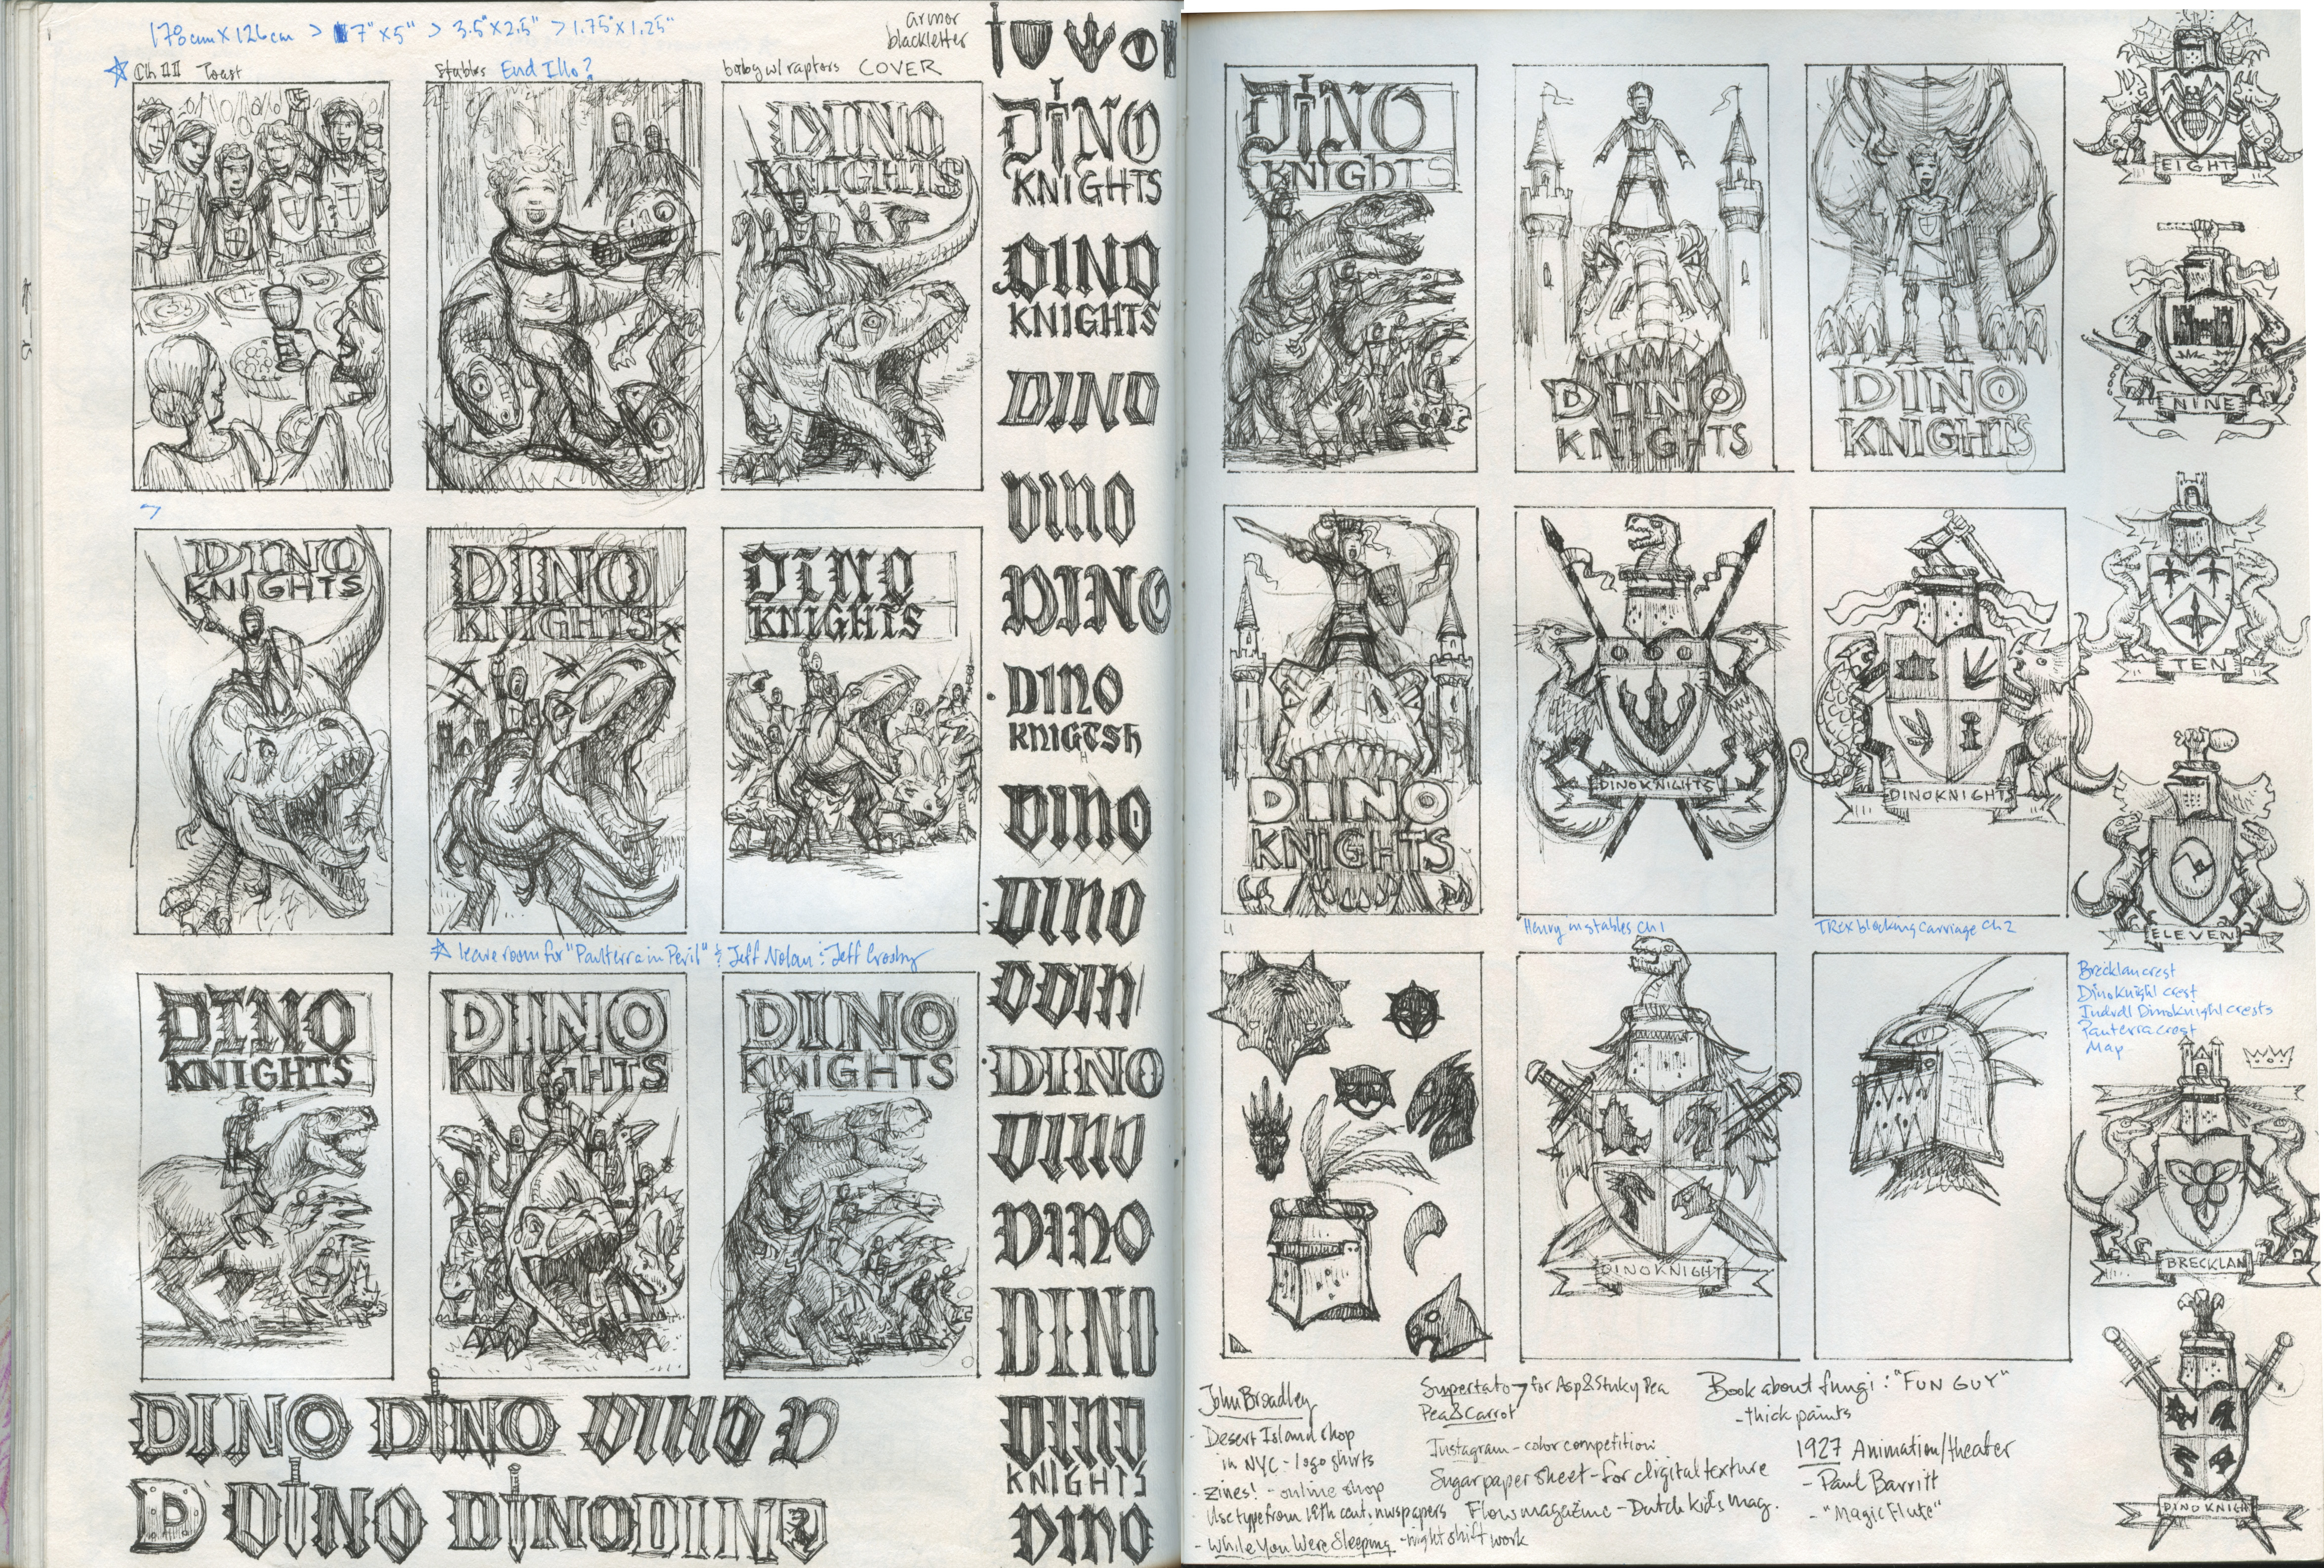 178cm X 126cm > 7" X 5" > 3.5" X 2.5" > 1.75" X 1.25"
armor
blackletter
Ch III Toast
Stables End Illo?
baby w/ raptors COVER
DINO
KNIGHTS
DINO
KNIGHTS
DINO
KNIGHTS
DINO
DINO
DINO
DINO
KNIGTSH
H
DINO
DINO
DINO
DINO
DINO
DINO
DINO
DINO
KNIGHTS
DINO
DINO
KNIGHTS
DINO
KNIGHTS
DINO
KNIGHTS
leave room for "Panterra in Peril" & Jeff Nolan & Jeff Crosby
DINO
KNIGHTS
DINO
KNIGHTS
DINO
KNIGHTS
DINO DINO DINO D
D DINO DINO DINO
DINO
KNIGHTS
DINO
KNIGHTS
DINO
KNIGHTS
DINO
KNIGHTS
DINOKNIGHTS
DINOKNIGHTS
Henry in stables Ch 1
TRex blocking carriage Ch 2
DINOKNIGHT
EIGHT
NINE
TEN
ELEVEN
Brecklan crest
DinoKnight crest
Indvdl DinoKnight crests
Panterra crest
Map
BRECKLAN
DINOKNIGHT
John Broadley
- Desert Island shop
in NYC - logo shirts
- zines! - online shop
- Use type from 19th cent. nwspapers
- While You Were Sleeping - night shift work
Supertato > for Asp & Stinky Pea
Pea & Carrot
Instagram - color competition
Sugar paper sheet - for digital texture
Flow magazine - Dutch kids mag.
Book about fungi: "FUN GUY"
- thick paints
1927 Animation/theater
- Paul Barritt
- "Magic Flute"